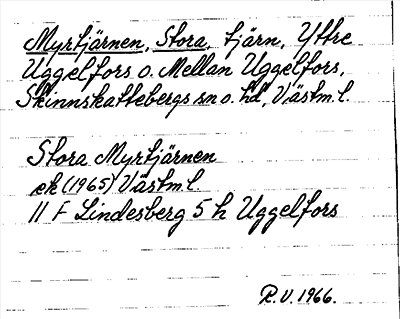 Myrtjärnen, Stora, tjärn, Yttre
Uggelfors o. Mellan Uggelfors,
Skinnskattebergs sn o. hd, Västm.l.
Stora Myrtjärnen
ek (1965) Västm.l.
11 F Lindesberg 5 h Uggelfors
R.V. 1966.